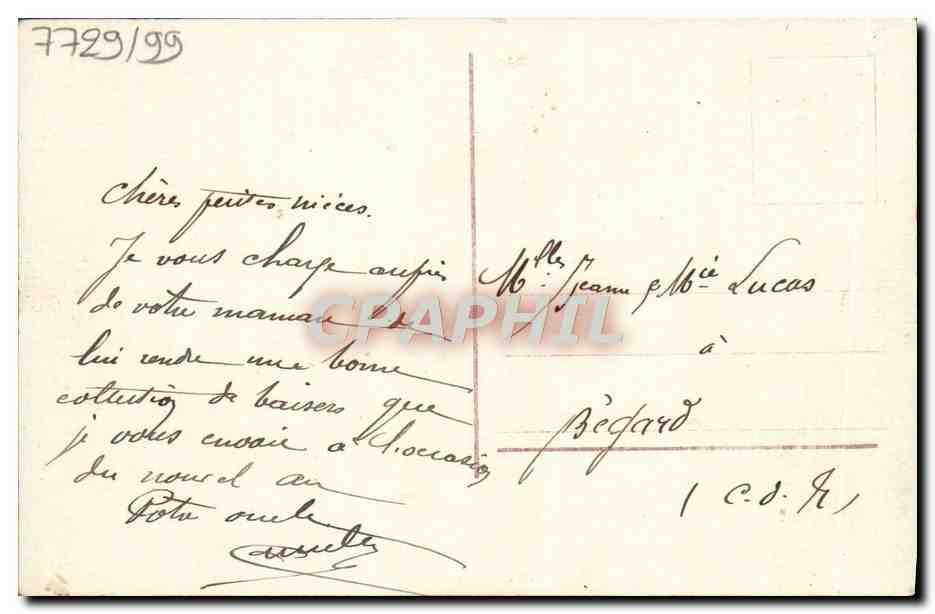 7729/99
Chères petites nièces.
Je vous charge auprès
de votre maman de
lui rendre une bonne
collection de baisers que
je vous envoie à l'occasion
du nouvel an
Votre oncle
Mlles Jeanne & Mie Lucas
à
Bégard
(C.d.N)
CPAPHIL